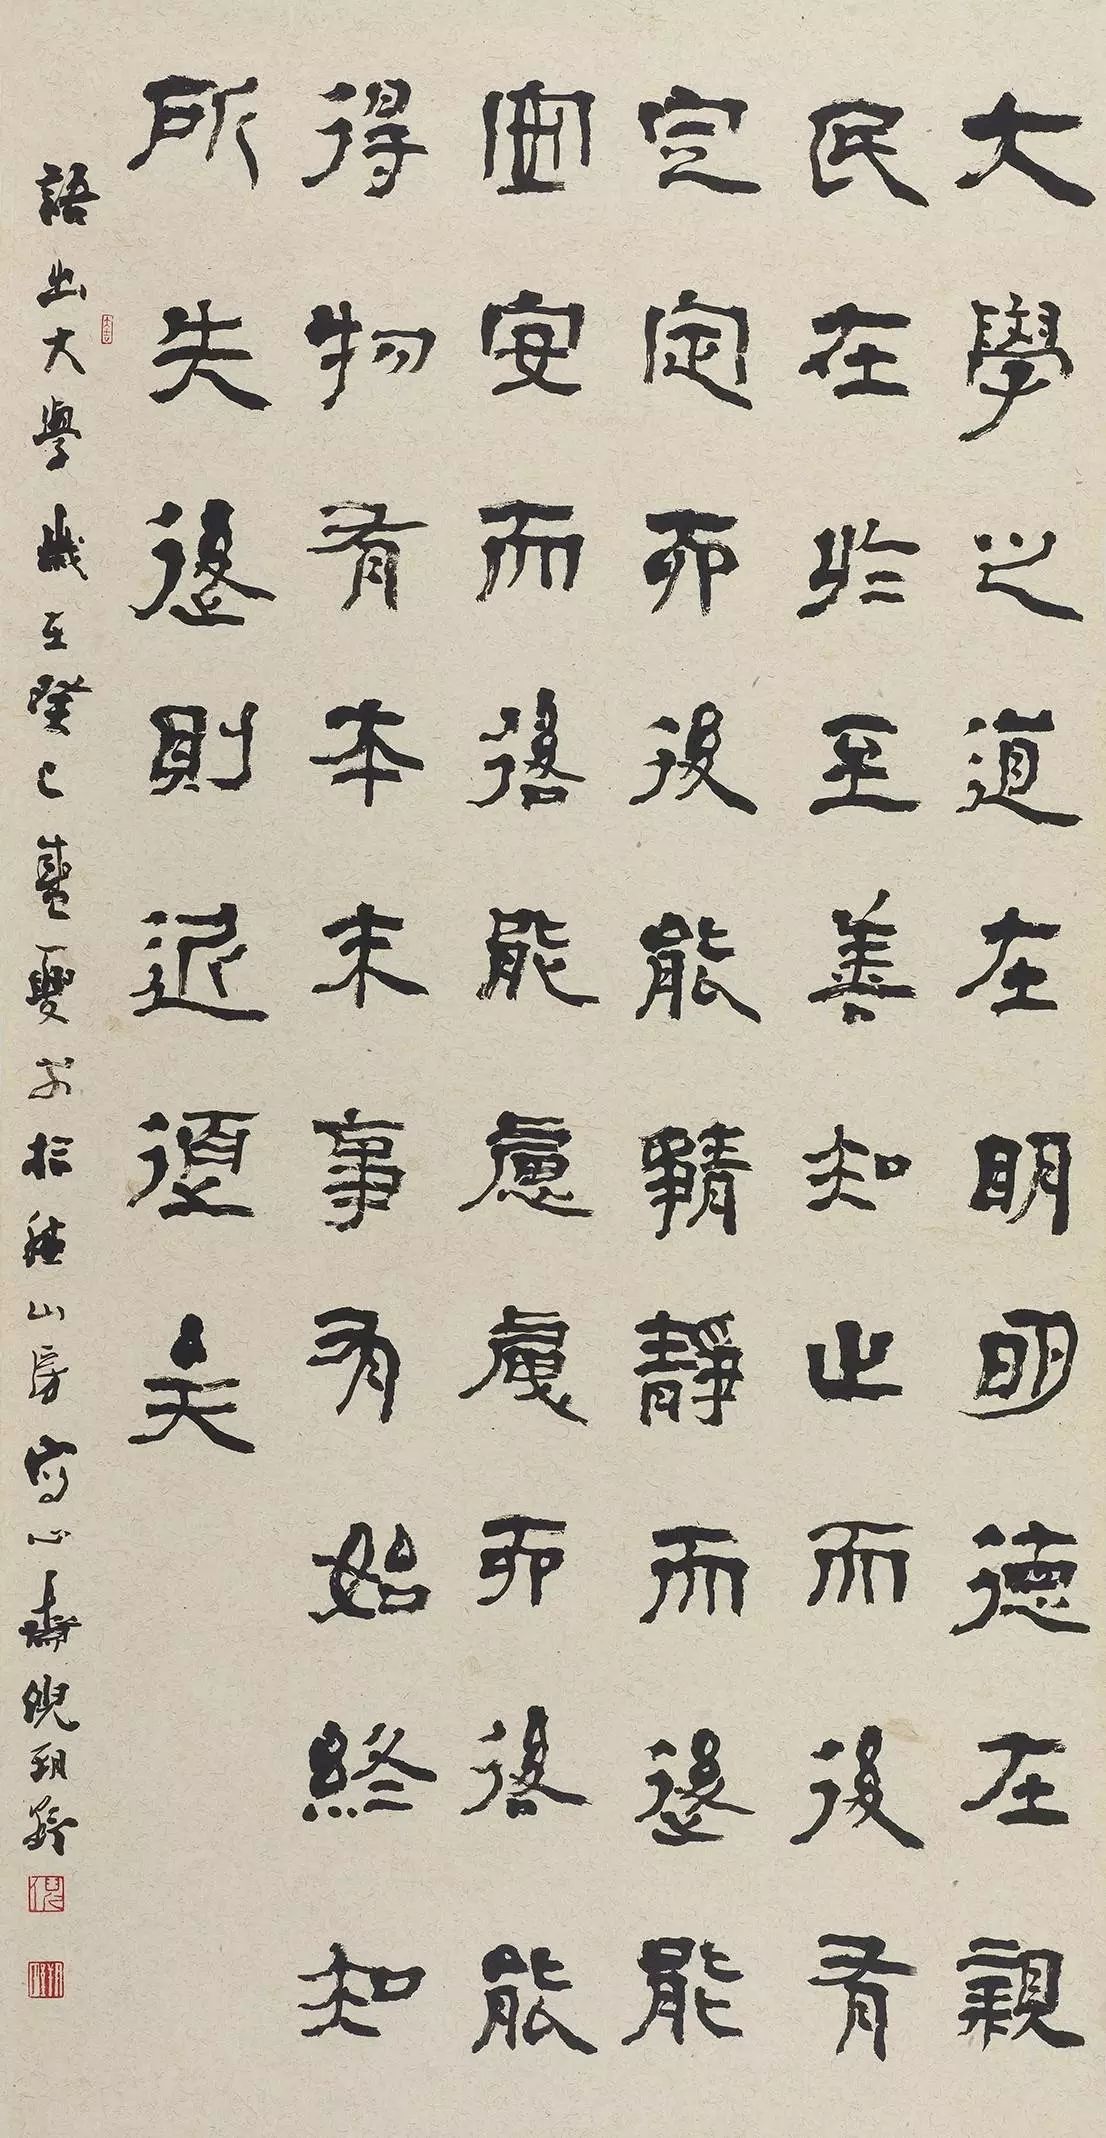 大學之道在明明德在親
民在於至善知止而後有
定定而後能靜靜而後能
安安而後能慮慮而後能
得物有本末事有始終知
所先後則近道矣
語出大學歲在癸巳盛夏於山房寫心齋倪